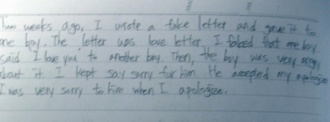 Two weeks ago, I wrote a fake letter and gave it to
one boy. The letter was love letter. I faked that one boy
said I love you to another boy. Then, the boy was very angry
about it. I kept say sorry for him. He accepted my apologize
I was very sorry to him when I apologize.